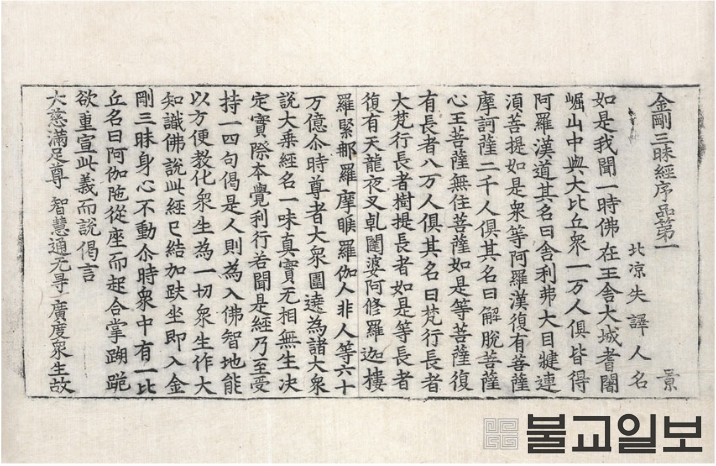 金剛三昧經序品第一
北涼失譯人名 景
如是我聞一時佛在王舍大城耆闍
崛山中與大比丘衆一万人俱皆得
阿羅漢道其名曰舍利弗大目犍連
須菩提如是衆等阿羅漢復有菩薩
摩訶薩二千人俱其名曰解脫菩薩
心王菩薩無住菩薩如是等菩薩復
有長者八万人俱其名曰梵行長者
大梵行長者樹提長者如是等長者
復有天龍夜叉乹闥婆阿修羅迦樓
羅緊那羅摩睺羅伽人非人等六十
万億尒時尊者大衆圍遶為諸大衆
說大乘經名一味真實无相無生决
定實際本覺利行若聞是經乃至受
持一四句偈是人則為入佛智地能
以方便教化衆生為一切衆生作大
知識佛說此經已結加趺坐即入金
剛三昧身心不動尒時衆中有一比
丘名曰阿伽陁從座而起合掌蹋跪
欲重宣此義而說偈言
大慈滿足尊 智慧通无㝵 廣度衆生故
불교일보